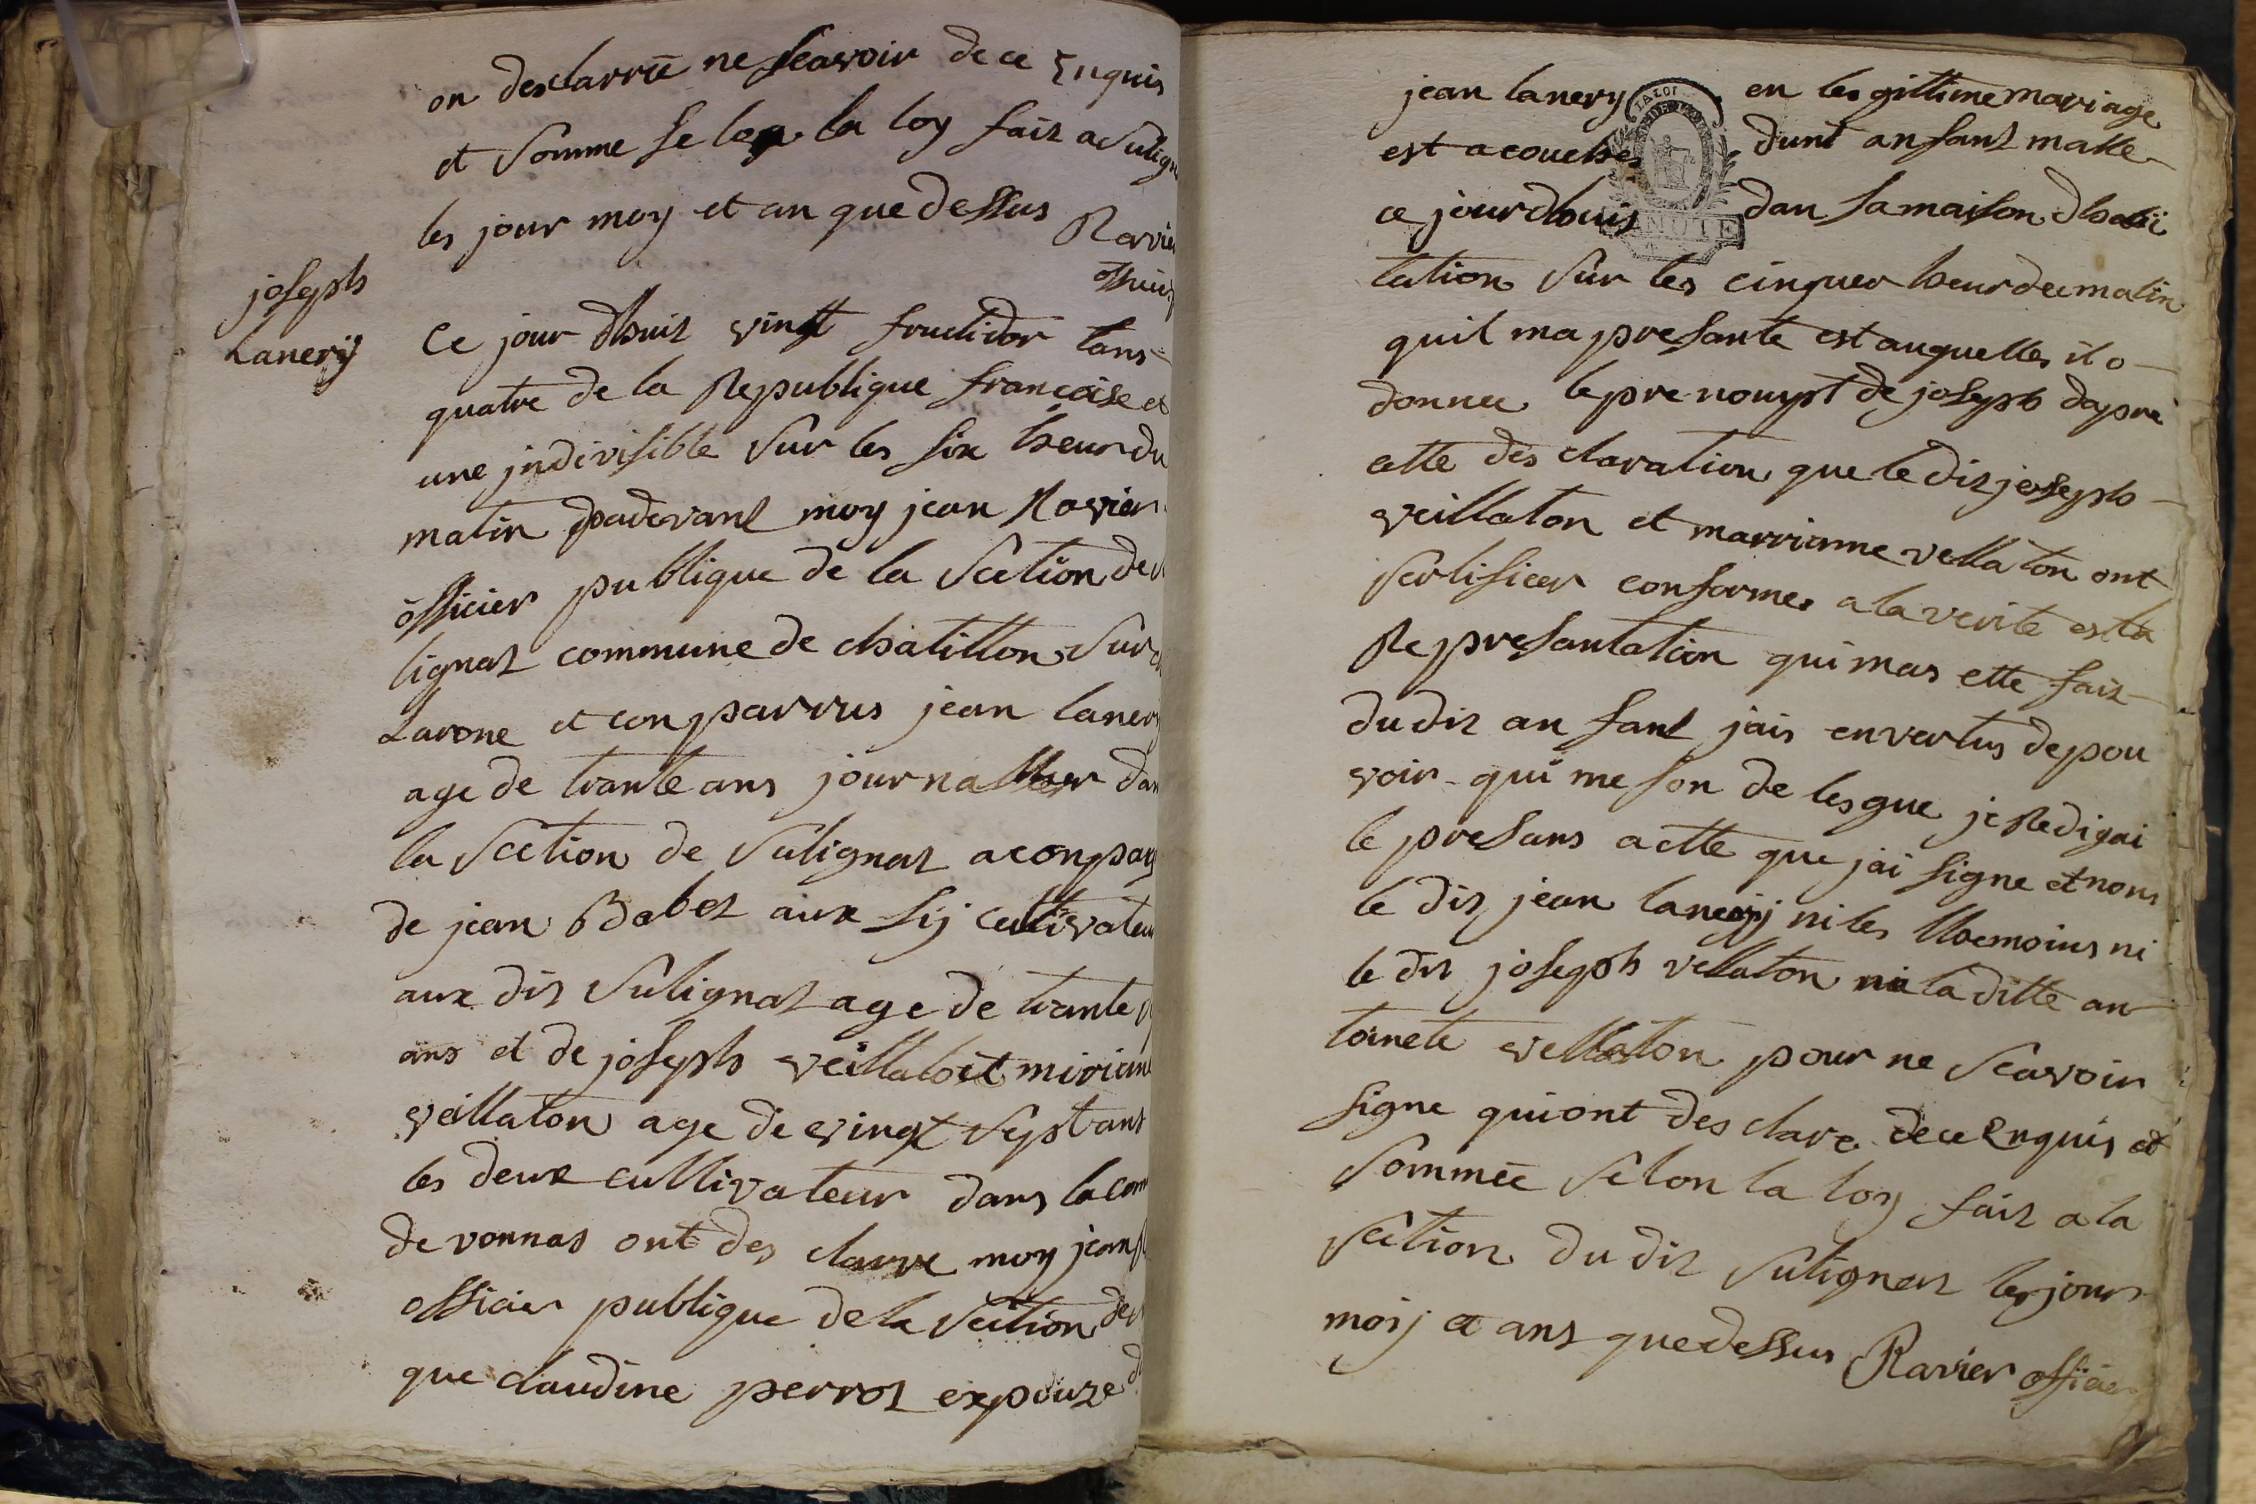 on desclarrée ne scavoir de ce Enquis
et somme selon la loy fait a sulign
les jour moy et an que dessus Ravie
joseph
Lanerij
Ce jour dhuit vingt fructidor lans
quatre de la Republique francoise et
une jndivisible sur les six heur du
matin padevant moy jean Ravier
officier publique de la section de
lignat commune de chatillon sur
Larone et conparrus jean lanery
age de trante ans journallier dan
la section de sulignat aconpag
de jean Babet aux sij cultivateur
aux dit sulignat age de trante
ans et de joseph veillatoit miriane
veillaton age de vingt sept ans
les deux cultivateur dans la com
de vonnas ont des clarre moy jean
officier publique de la section de
que claudine perrot expouze
jean lanery en les gittime mariage
est acouches dunt anfant malle
ce jourdhuis dan samaison dhabi
tation sur les cinquer heur dee matin
quil ma presante est auquelles il o
donnee le pre noupt de joseph dapre
cette des claration que le dit joseph
veillaton et marrianne vellaton ont
sertifier conforme a la verite est la
Represantation qui mas ette fait
du dit an fant jais en vertus de pou
voir qui me son de lesgue je Redigai
le presans actte que jai signe et nons
le dit jean lanerij ni les themoins ni
le dit joseph vellaton ni la ditte an
toinete vellaton pour ne scavoir
signe qui ont des clare de ce Enquis et
sommée selon la loy fait a la
section du dit sulignat les jour
moij et ans que dessus Ravier officier